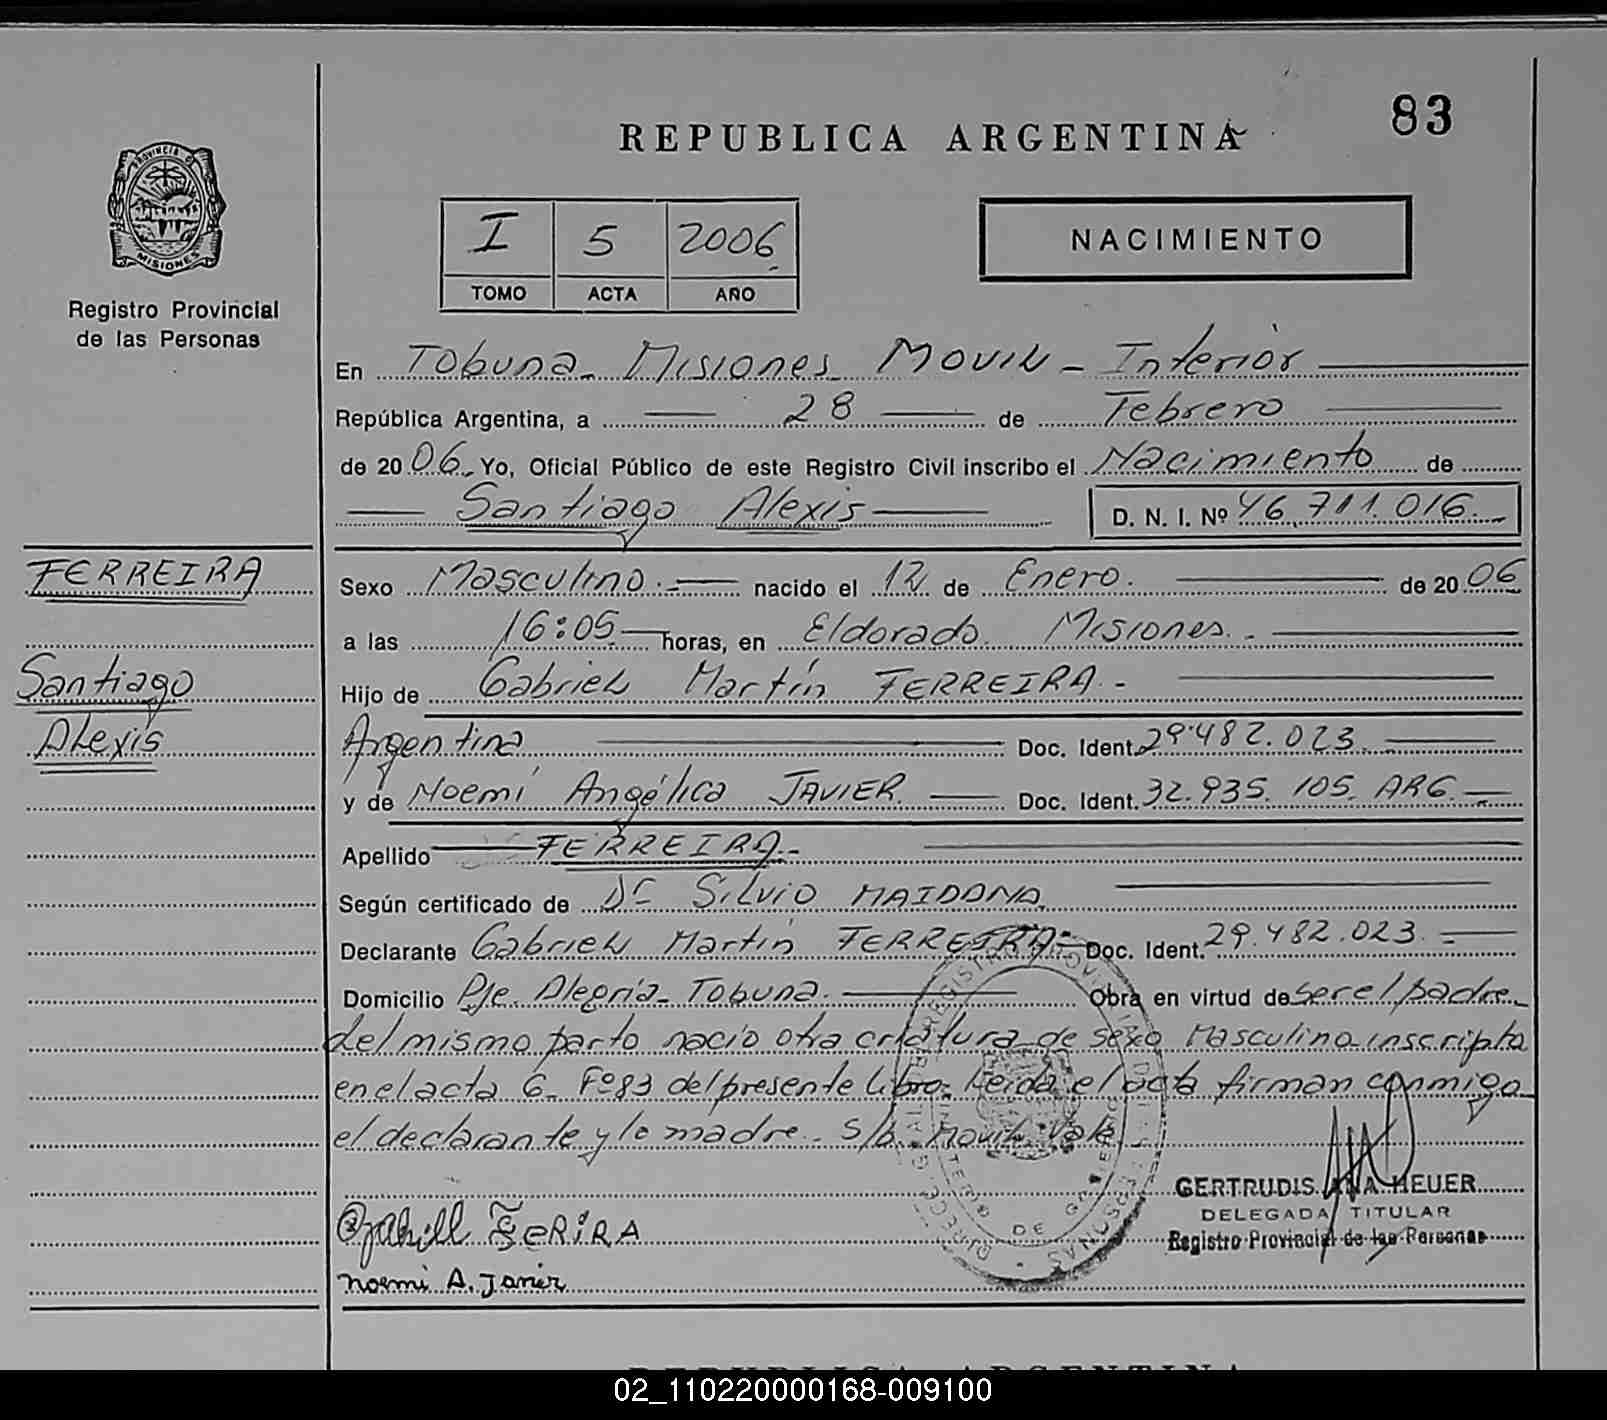 83
REPUBLICA ARGENTINA
PROVINCIA DE
MISIONES
Registro Provincial
de las Personas
I 5 2006
TOMO ACTA AÑO
NACIMIENTO
En Tobuna - Misiones MOVIL - Interior
República Argentina, a 28 de Febrero
de 2006. Yo, Oficial Público de este Registro Civil inscribo el Nacimiento de
Santiago Alexis D. N. I. Nº 46.711.016.
FERREIRA
Santiago
Alexis
Sexo Masculino. nacido el 12 de Enero. de 2006
a las 16:05 horas, en Eldorado. Misiones. -
Hijo de Gabriel Martín FERREIRA. -
Argentina Doc. Ident. 29.482.023.
y de Noemí Angélica JAVIER. Doc. Ident. 32.935.105. ARG. -
Apellido FERREIRA. -
Según certificado de Dr Silvio MAIDANA.
Declarante Gabriel Martín FERREIRA - Doc. Ident. 29.482.023. -
Domicilio Pje. Alegría - Tobuna. Obra en virtud de ser el padre -
del mismo parto nació otra criatura de sexo Masculino inscripta
en el acta 6 - Fº 83 del presente libro. Leida el acta firman conmigo
el declarante y la madre. - S/b. Movil. Vale
GERTRUDIS ANA HEUER
DELEGADA TITULAR
Registro Provincial de las Personas
FeRiRA
Noemi A. Javier
REPUBLICA ARGENTINA
02_110220000168-009100